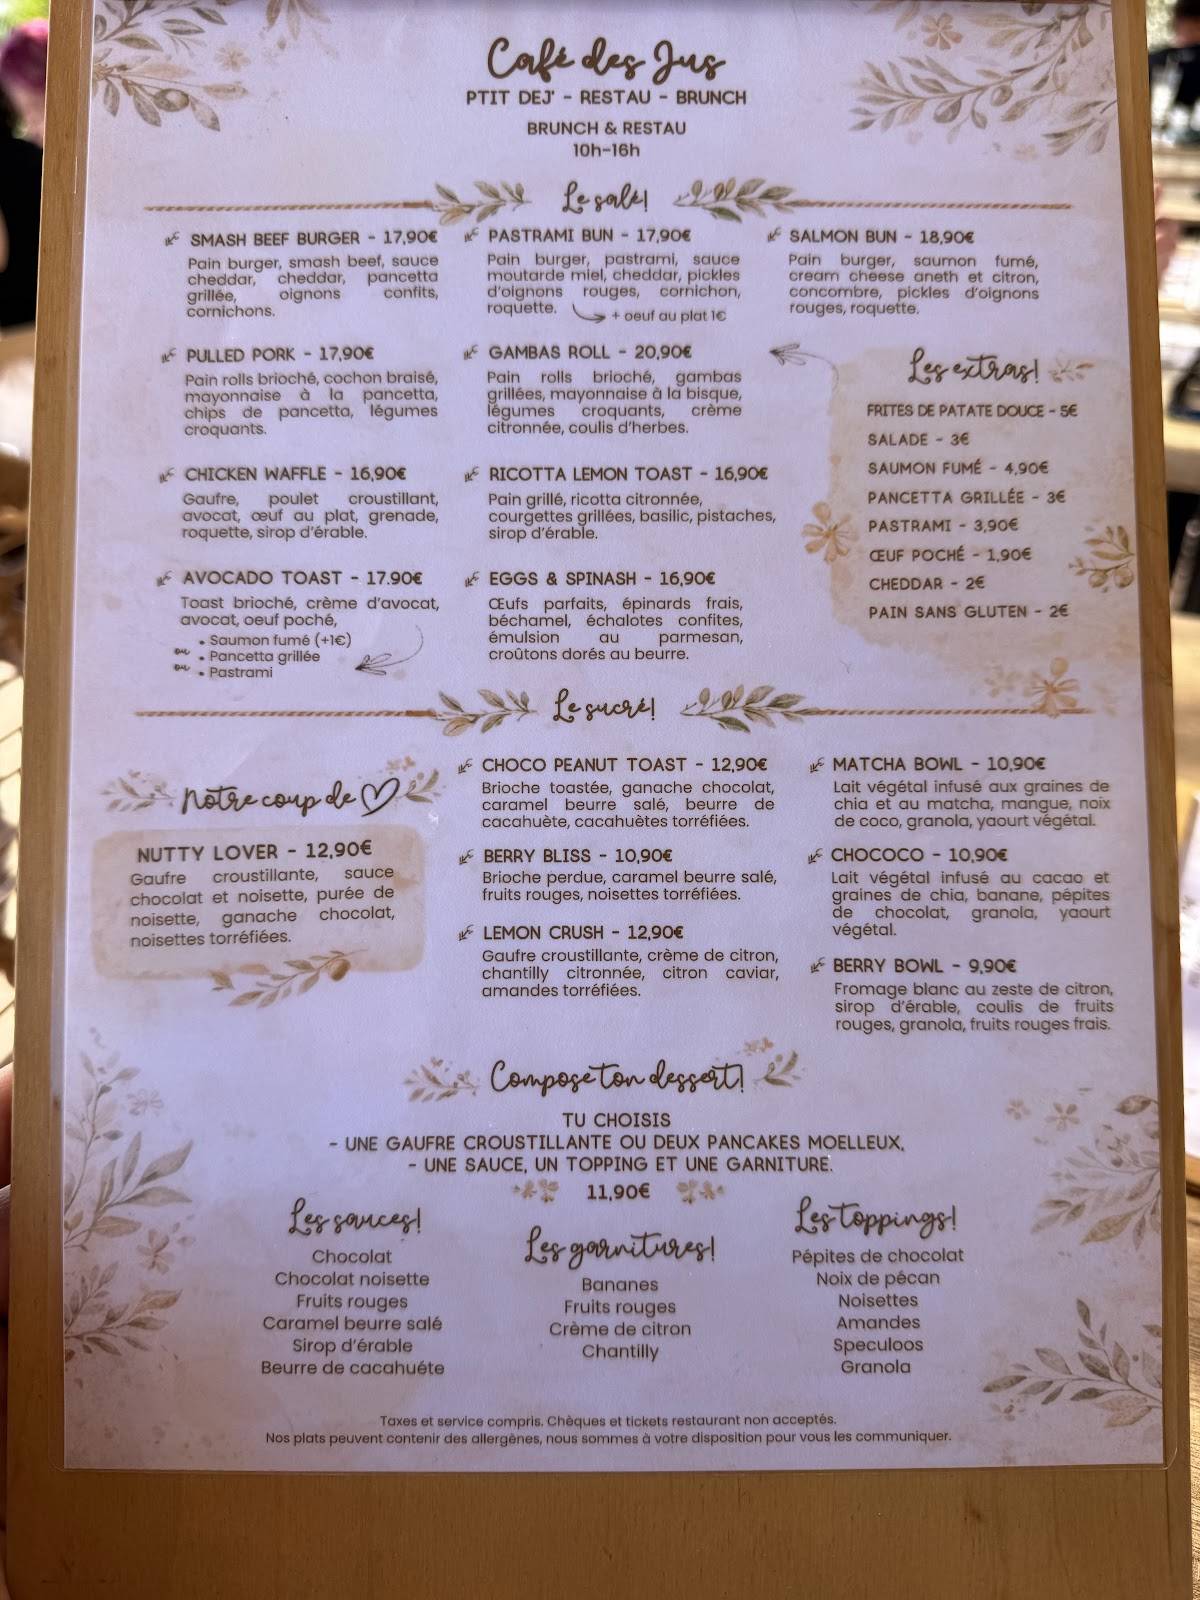 Café des Jus
PTIT DEJ' - RESTAU - BRUNCH
BRUNCH & RESTAU
10h-16h
Le salé!
SMASH BEEF BURGER - 17,90€
Pain burger, smash beef, sauce
cheddar, cheddar, pancetta
grillée, oignons confits,
cornichons.
PASTRAMI BUN - 17,90€
Pain burger, pastrami, sauce
moutarde miel, cheddar, pickles
d'oignons rouges, cornichon,
roquette.
+ oeuf au plat 1€
SALMON BUN - 18,90€
Pain burger, saumon fumé,
cream cheese aneth et citron,
concombre, pickles d'oignons
rouges, roquette.
PULLED PORK - 17,90€
Pain rolls brioché, cochon braisé,
mayonnaise à la pancetta,
chips de pancetta, légumes
croquants.
GAMBAS ROLL - 20,90€
Pain rolls brioché, gambas
grillées, mayonnaise à la bisque,
légumes croquants, crème
citronnée, coulis d'herbes.
CHICKEN WAFFLE - 16,90€
Gaufre, poulet croustillant,
avocat, œuf au plat, grenade,
roquette, sirop d'érable.
RICOTTA LEMON TOAST - 16,90€
Pain grillé, ricotta citronnée,
courgettes grillées, basilic, pistaches,
sirop d'érable.
AVOCADO TOAST - 17.90€
Toast brioché, crème d'avocat,
avocat, oeuf poché,
• Saumon fumé (+1€)
ou • Pancetta grillée
ou • Pastrami
EGGS & SPINASH - 16,90€
Œufs parfaits, épinards frais,
béchamel, échalotes confites,
émulsion au parmesan,
croûtons dorés au beurre.
Les extras!
FRITES DE PATATE DOUCE - 5€
SALADE - 3€
SAUMON FUMÉ - 4,90€
PANCETTA GRILLÉE - 3€
PASTRAMI - 3,90€
ŒUF POCHÉ - 1,90€
CHEDDAR - 2€
PAIN SANS GLUTEN - 2€
Le sucré!
Notre coup de
NUTTY LOVER - 12,90€
Gaufre croustillante, sauce
chocolat et noisette, purée de
noisette, ganache chocolat,
noisettes torréfiées.
CHOCO PEANUT TOAST - 12,90€
Brioche toastée, ganache chocolat,
caramel beurre salé, beurre de
cacahuète, cacahuètes torréfiées.
BERRY BLISS - 10,90€
Brioche perdue, caramel beurre salé,
fruits rouges, noisettes torréfiées.
LEMON CRUSH - 12,90€
Gaufre croustillante, crème de citron,
chantilly citronnée, citron caviar,
amandes torréfiées.
MATCHA BOWL - 10,90€
Lait végétal infusé aux graines de
chia et au matcha, mangue, noix
de coco, granola, yaourt végétal.
CHOCOCO - 10,90€
Lait végétal infusé au cacao et
graines de chia, banane, pépites
de chocolat, granola, yaourt
végétal.
BERRY BOWL - 9,90€
Fromage blanc au zeste de citron,
sirop d'érable, coulis de fruits
rouges, granola, fruits rouges frais.
Compose ton dessert!
TU CHOISIS
- UNE GAUFRE CROUSTILLANTE OU DEUX PANCAKES MOELLEUX,
- UNE SAUCE, UN TOPPING ET UNE GARNITURE.
11,90€
Les sauces!
Chocolat
Chocolat noisette
Fruits rouges
Caramel beurre salé
Sirop d'érable
Beurre de cacahuéte
Les garnitures!
Bananes
Fruits rouges
Crème de citron
Chantilly
Les toppings!
Pépites de chocolat
Noix de pécan
Noisettes
Amandes
Speculoos
Granola
Taxes et service compris. Chèques et tickets restaurant non acceptés.
Nos plats peuvent contenir des allergènes, nous sommes à votre disposition pour vous les communiquer.